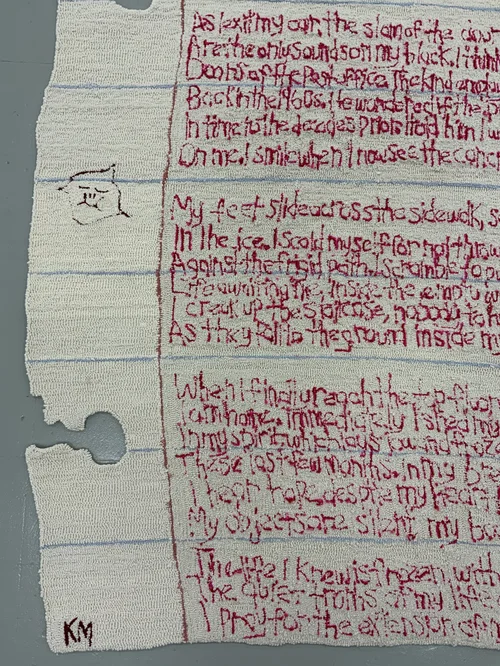 As I exit my car, the slam of the
Are the only sounds on my block. I think
Doors of the Post Office. The kind
Back in the 1960s. He wondered if the
In time to the decades prior. I told him I
On me. I smile when I now see the
My feet slide across the sidewalk, s
In the ice. I scold myself for not throw
Against the frigid path. I scramble to
Life awaiting me, inside the empty
I creak up the staircase, nobody to h
As they fall to the ground inside m
When I finally reach the top floor
I am home. Immediately I shed my
In my spirit which lays low
These last few months. In my
I hear hope despite my heart
My objects are silent, my b
The life I knew is frozen with
The quiet truths of my life
I pray for the extension of m
KM